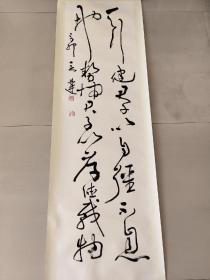 天行健君子以自彊不息
地勢坤君子以厚德載物